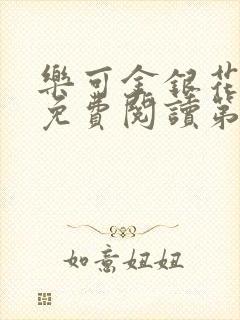 樂可金銀花
免費閱讀第
如意妞妞